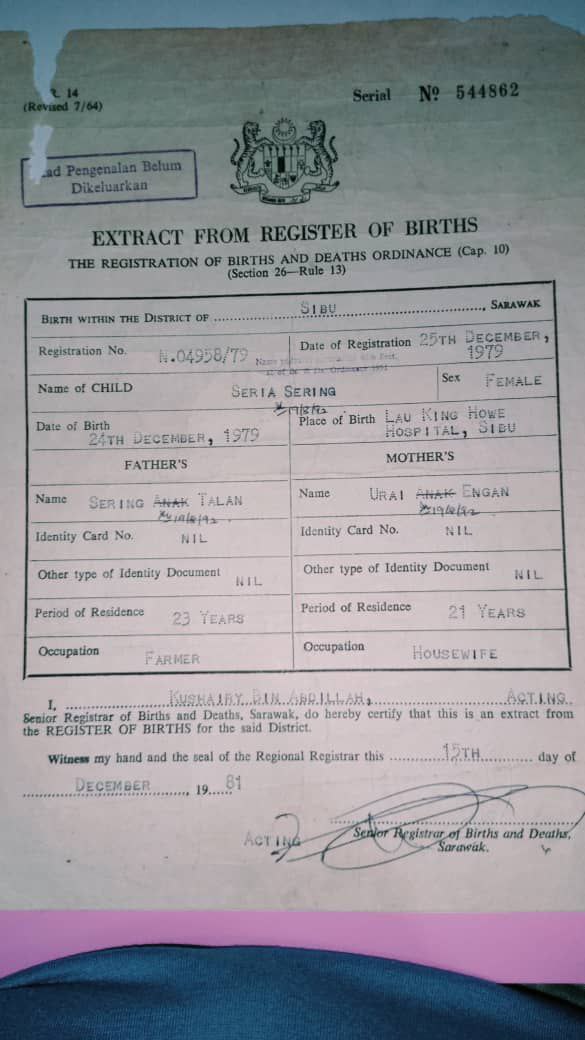 R. 14
(Revised 7/64)
Serial Nº 544862
Kad Pengenalan Belum
Dikeluarkan
EXTRACT FROM REGISTER OF BIRTHS
THE REGISTRATION OF BIRTHS AND DEATHS ORDINANCE (Cap. 10)
(Section 26—Rule 13)
BIRTH WITHIN THE DISTRICT OF SIBU, SARAWAK
Registration No. N.04958/79
Date of Registration 25TH DECEMBER, 1979
Name of CHILD SERIA SERING
Sex FEMALE
19/8/92
Date of Birth 24TH DECEMBER, 1979
Place of Birth LAU KING HOWE
HOSPITAL, SIBU
FATHER'S
MOTHER'S
Name SERING ANAK TALAN
19/8/92
Name URAI ANAK ENGAN
19/8/92
Identity Card No. NIL
Identity Card No. NIL
Other type of Identity Document NIL
Other type of Identity Document NIL
Period of Residence 23 YEARS
Period of Residence 21 YEARS
Occupation FARMER
Occupation HOUSEWIFE
I, KUSHAIRY BIN ABDILLAH, ACTING
Senior Registrar of Births and Deaths, Sarawak, do hereby certify that this is an extract from
the REGISTER OF BIRTHS for the said District.
Witness my hand and the seal of the Regional Registrar this 15TH day of
DECEMBER, 19 81
ACTING Senior Registrar of Births and Deaths,
Sarawak.